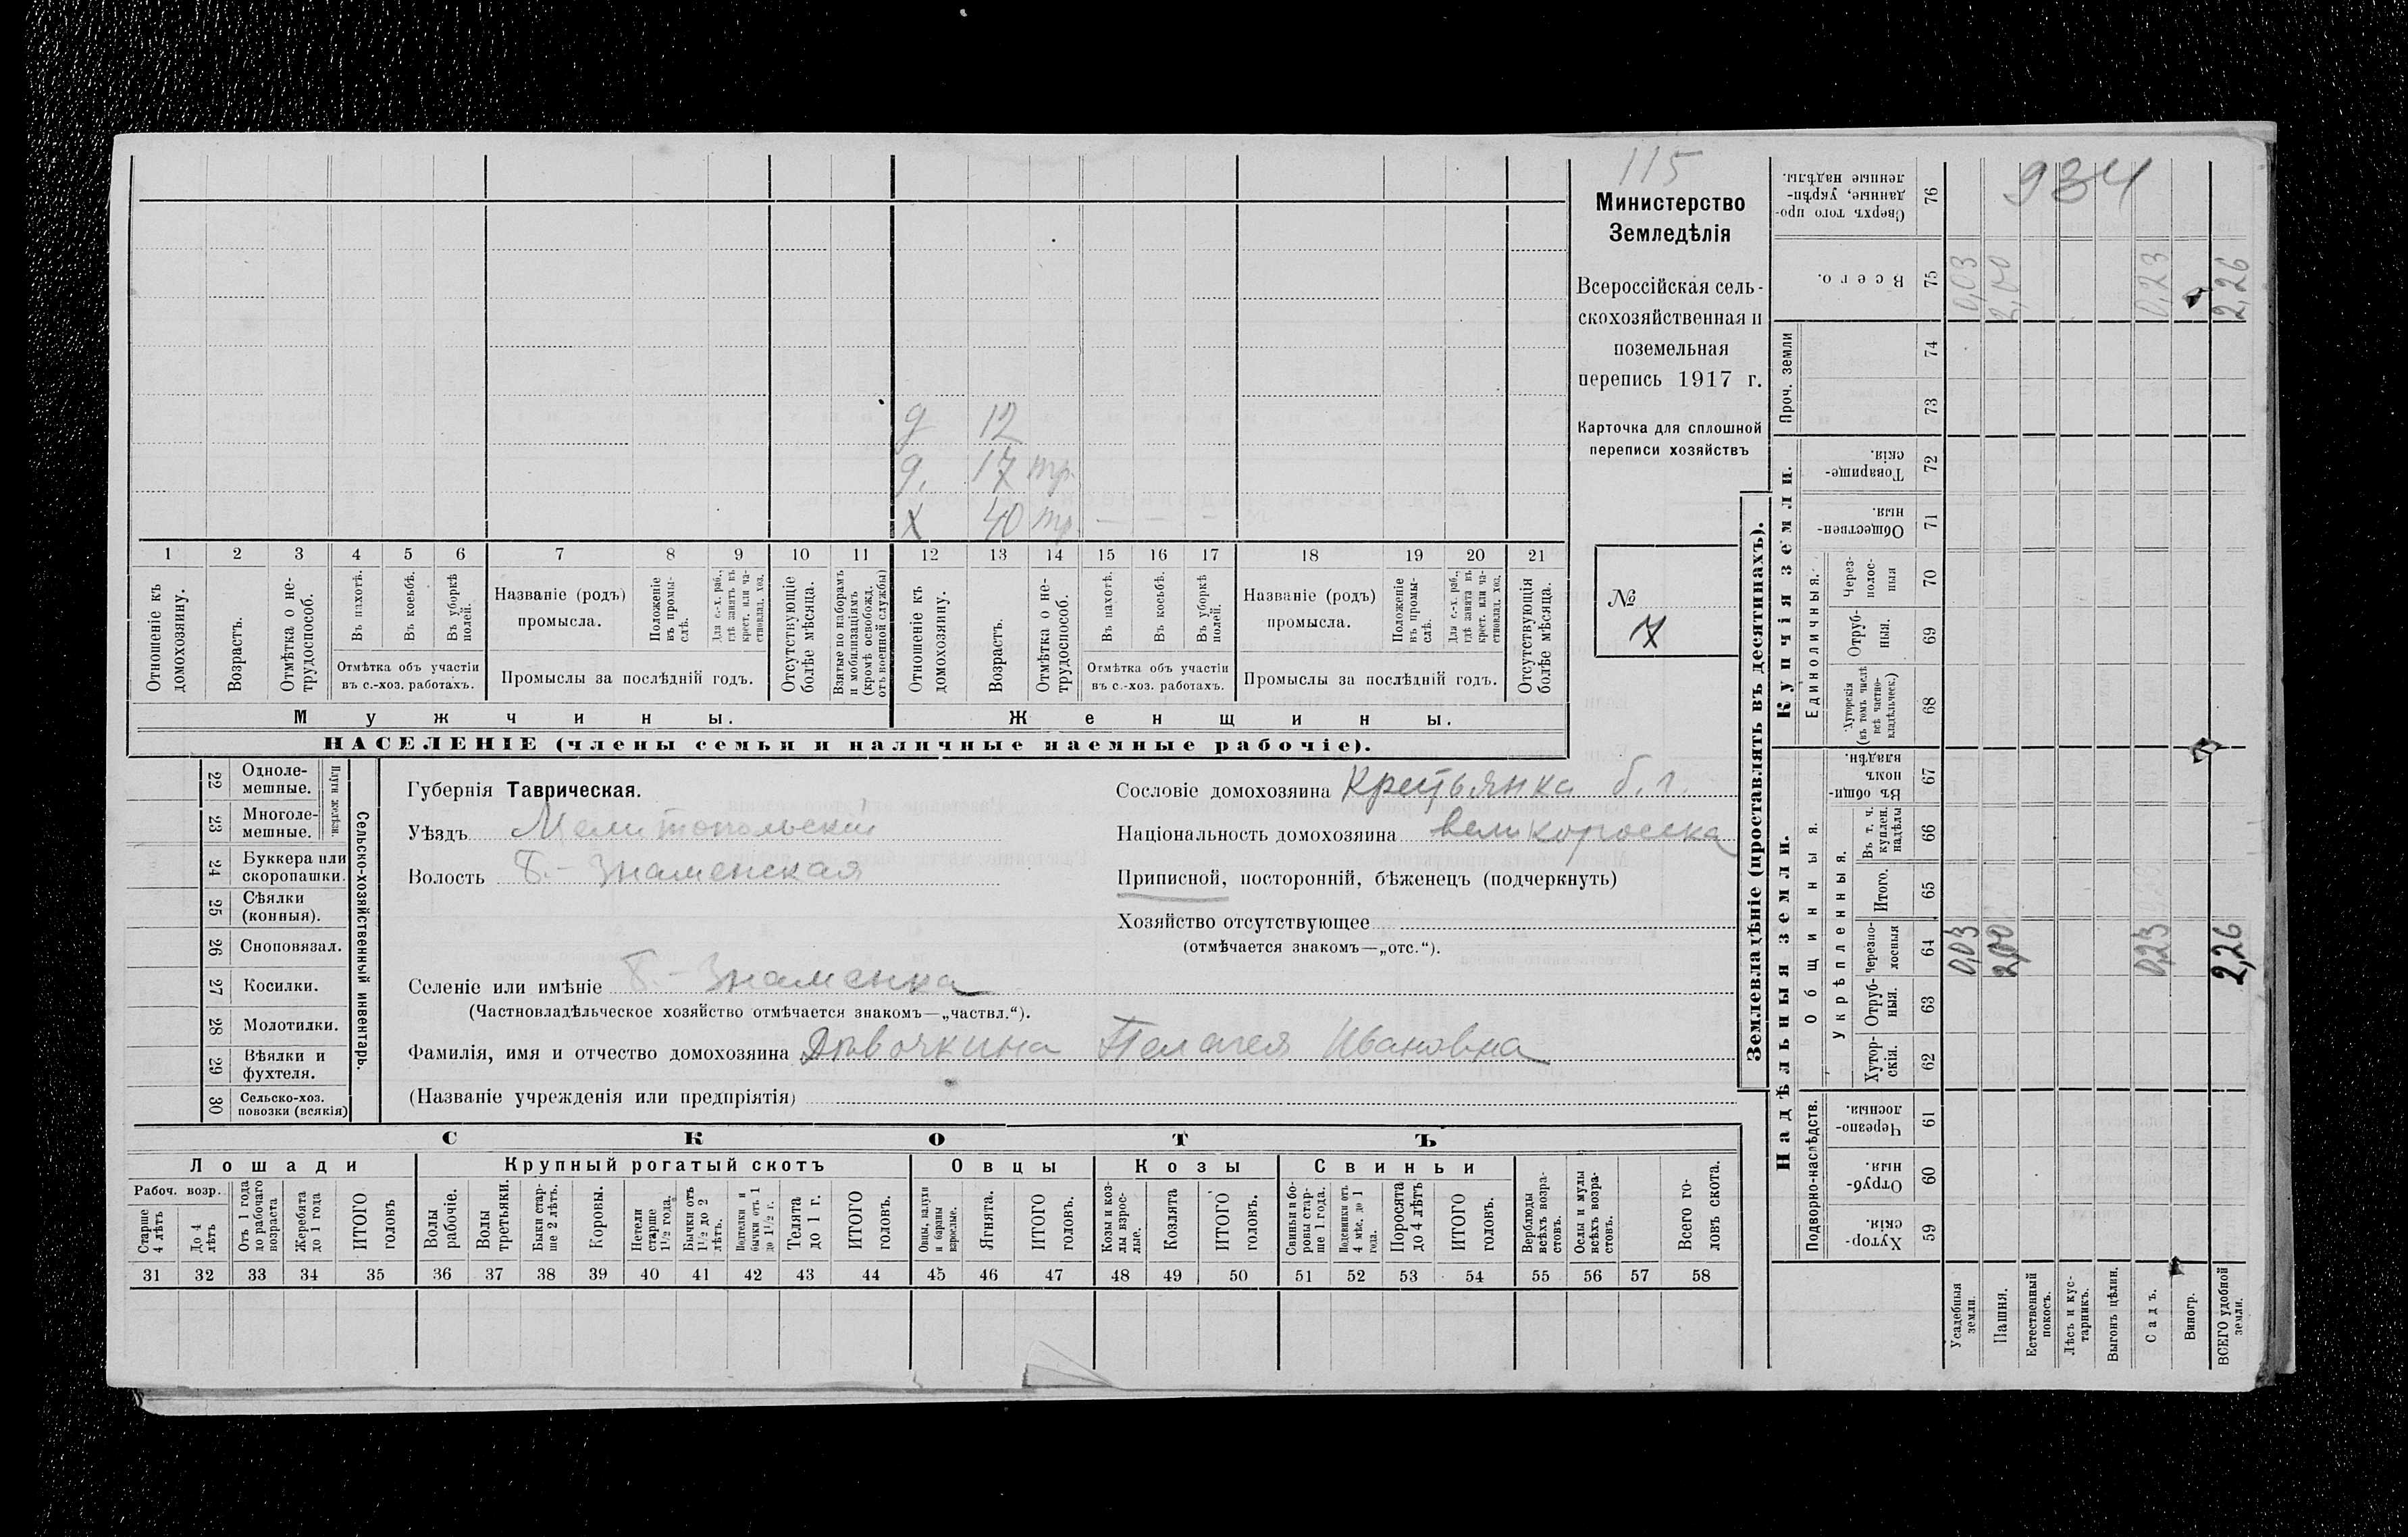 115
Министерство
Земледѣлія
Всероссійская сель-
скохозяйственная и
поземельная
перепись 1917 г.
Карточка для сплошной
переписи хозяйствъ
№
7
д 12
д. 17 тр.
х 40 тр. — — —
1 2 3 4 5 6 7 8 9 10 11 12 13 14 15 16 17 18 19 20 21
Отношеніе къ домохозяину.
Возрастъ.
Отмѣтка о не-трудоспособ.
Въ пахотѣ.
Въ косьбѣ.
Въ уборкѣ полей.
Отмѣтка объ участіи
въ с.-хоз. работахъ.
Названіе (родъ)
промысла.
Положеніе въ промы-слѣ.
Для с.-х. раб., гдѣ занятъ въ крест. или ча-стновлад. хоз.
Промыслы за послѣдній годъ.
Отсутствующіе болѣе мѣсяца.
Взятые по наборамъ и мобилизаціямъ (кромѣ освобожд. отъ военной службы)
Отношеніе къ домохозяину.
Возрастъ.
Отмѣтка о не-трудоспособ.
Въ пахотѣ.
Въ косьбѣ.
Въ уборкѣ полей.
Отмѣтка объ участіи
въ с.-хоз. работахъ.
Названіе (родъ)
промысла.
Положеніе въ промы-слѣ.
Для с.-х. раб., гдѣ занята въ крест. или ча-стновлад. хоз.
Промыслы за послѣдній годъ.
Отсутствующія болѣе мѣсяца.
Мужчины. Женщины.
НАСЕЛЕНІЕ (члены семьи и наличные наемные рабочіе).
Сельско-хозяйственный инвентарь.
Плуги желѣзн.
22 Одноле-мешные.
23 Многоле-мешные.
24 Буккера или скоропашки.
25 Сѣялки (конныя).
26 Сноповязал.
27 Косилки.
28 Молотилки.
29 Вѣялки и фухтеля.
30 Сельско-хоз. повозки (всякія)
Губернія Таврическая.
Уѣздъ Мелитопольскій
Волость Б.-Знаменская
Селеніе или имѣніе Б.-Знаменка
(Частновладѣльческое хозяйство отмѣчается знакомъ—„частвл.“).
Фамилія, имя и отчество домохозяина Дѣвочкина Пелагея Ивановна
(Названіе учрежденія или предпріятія)
Сословіе домохозяина Крестьянка б. г.
Національность домохозяина великоросска
Приписной, посторонній, бѣженецъ (подчеркнуть)
Хозяйство отсутствующее
(отмѣчается знакомъ—„отс.“).
СКОТЪ
Лошади Крупный рогатый скотъ Овцы Козы Свиньи
Рабоч. возр.
Старше 4 лѣтъ
До 4 лѣтъ
Отъ 1 года до рабочаго возраста
Жеребята до 1 года
ИТОГО головъ
Волы рабочіе.
Волы третьяки.
Быки стар-ше 2 лѣтъ.
Коровы.
Нетели старше 1½ года.
Бычки отъ 1½ до 2 лѣтъ.
Подтелки и бычки отъ 1 до 1½ г.
Телята до 1 г.
ИТОГО головъ.
Овцы, валухи и бараны взрослые.
Ягнята.
ИТОГО головъ.
Козы и коз-лы взрос-лые.
Козлята
ИТОГО головъ.
Свиньи и бо-ровы стар-ше 1 года.
Подсвинки отъ 4 мѣс. до 1 года.
Поросята до 4 лѣтъ
ИТОГО головъ.
Верблюды всѣхъ возра-стовъ.
Ослы и мулы всѣхъ возра-стовъ.
Всего го-ловъ скота.
31 32 33 34 35 36 37 38 39 40 41 42 43 44 45 46 47 48 49 50 51 52 53 54 55 56 57 58
934
Землевладѣніе (проставлять въ десятинахъ).
Надѣльныя земли.
Купчія земли.
Проч. земли
Подворно-наслѣдств.
Общинныя.
Укрѣпленныя.
Единоличныя.
Сверхъ того про-данные, укрѣп-ленные надѣлы. 76
Всего. 75 0,03 2,00 0,23 2,26
74
73
Товарище-скія. 72
Обществен-ныя. 71
Через-полос-ныя 70
Отруб-ныя. 69
Хуторскія (въ томъ числѣ всѣ частно-владѣльческ.) 68
Въ общи-номъ владѣн. 67
Въ т. ч. куплен. надѣлы 66
Итого. 65
Черезпо-лосныя 64 0,03 2,00 0,23 2,26
Отруб-ныя. 63
Хутор-скія. 62
Черезпо-лосныя. 61
Отруб-ныя. 60
Хутор-скія. 59
Усадебныя земли.
Пашня.
Естественный покосъ.
Лѣсъ и кус-тарникъ.
Выгонъ цѣлин.
Садъ.
Виногр.
ВСЕГО удобной земли.